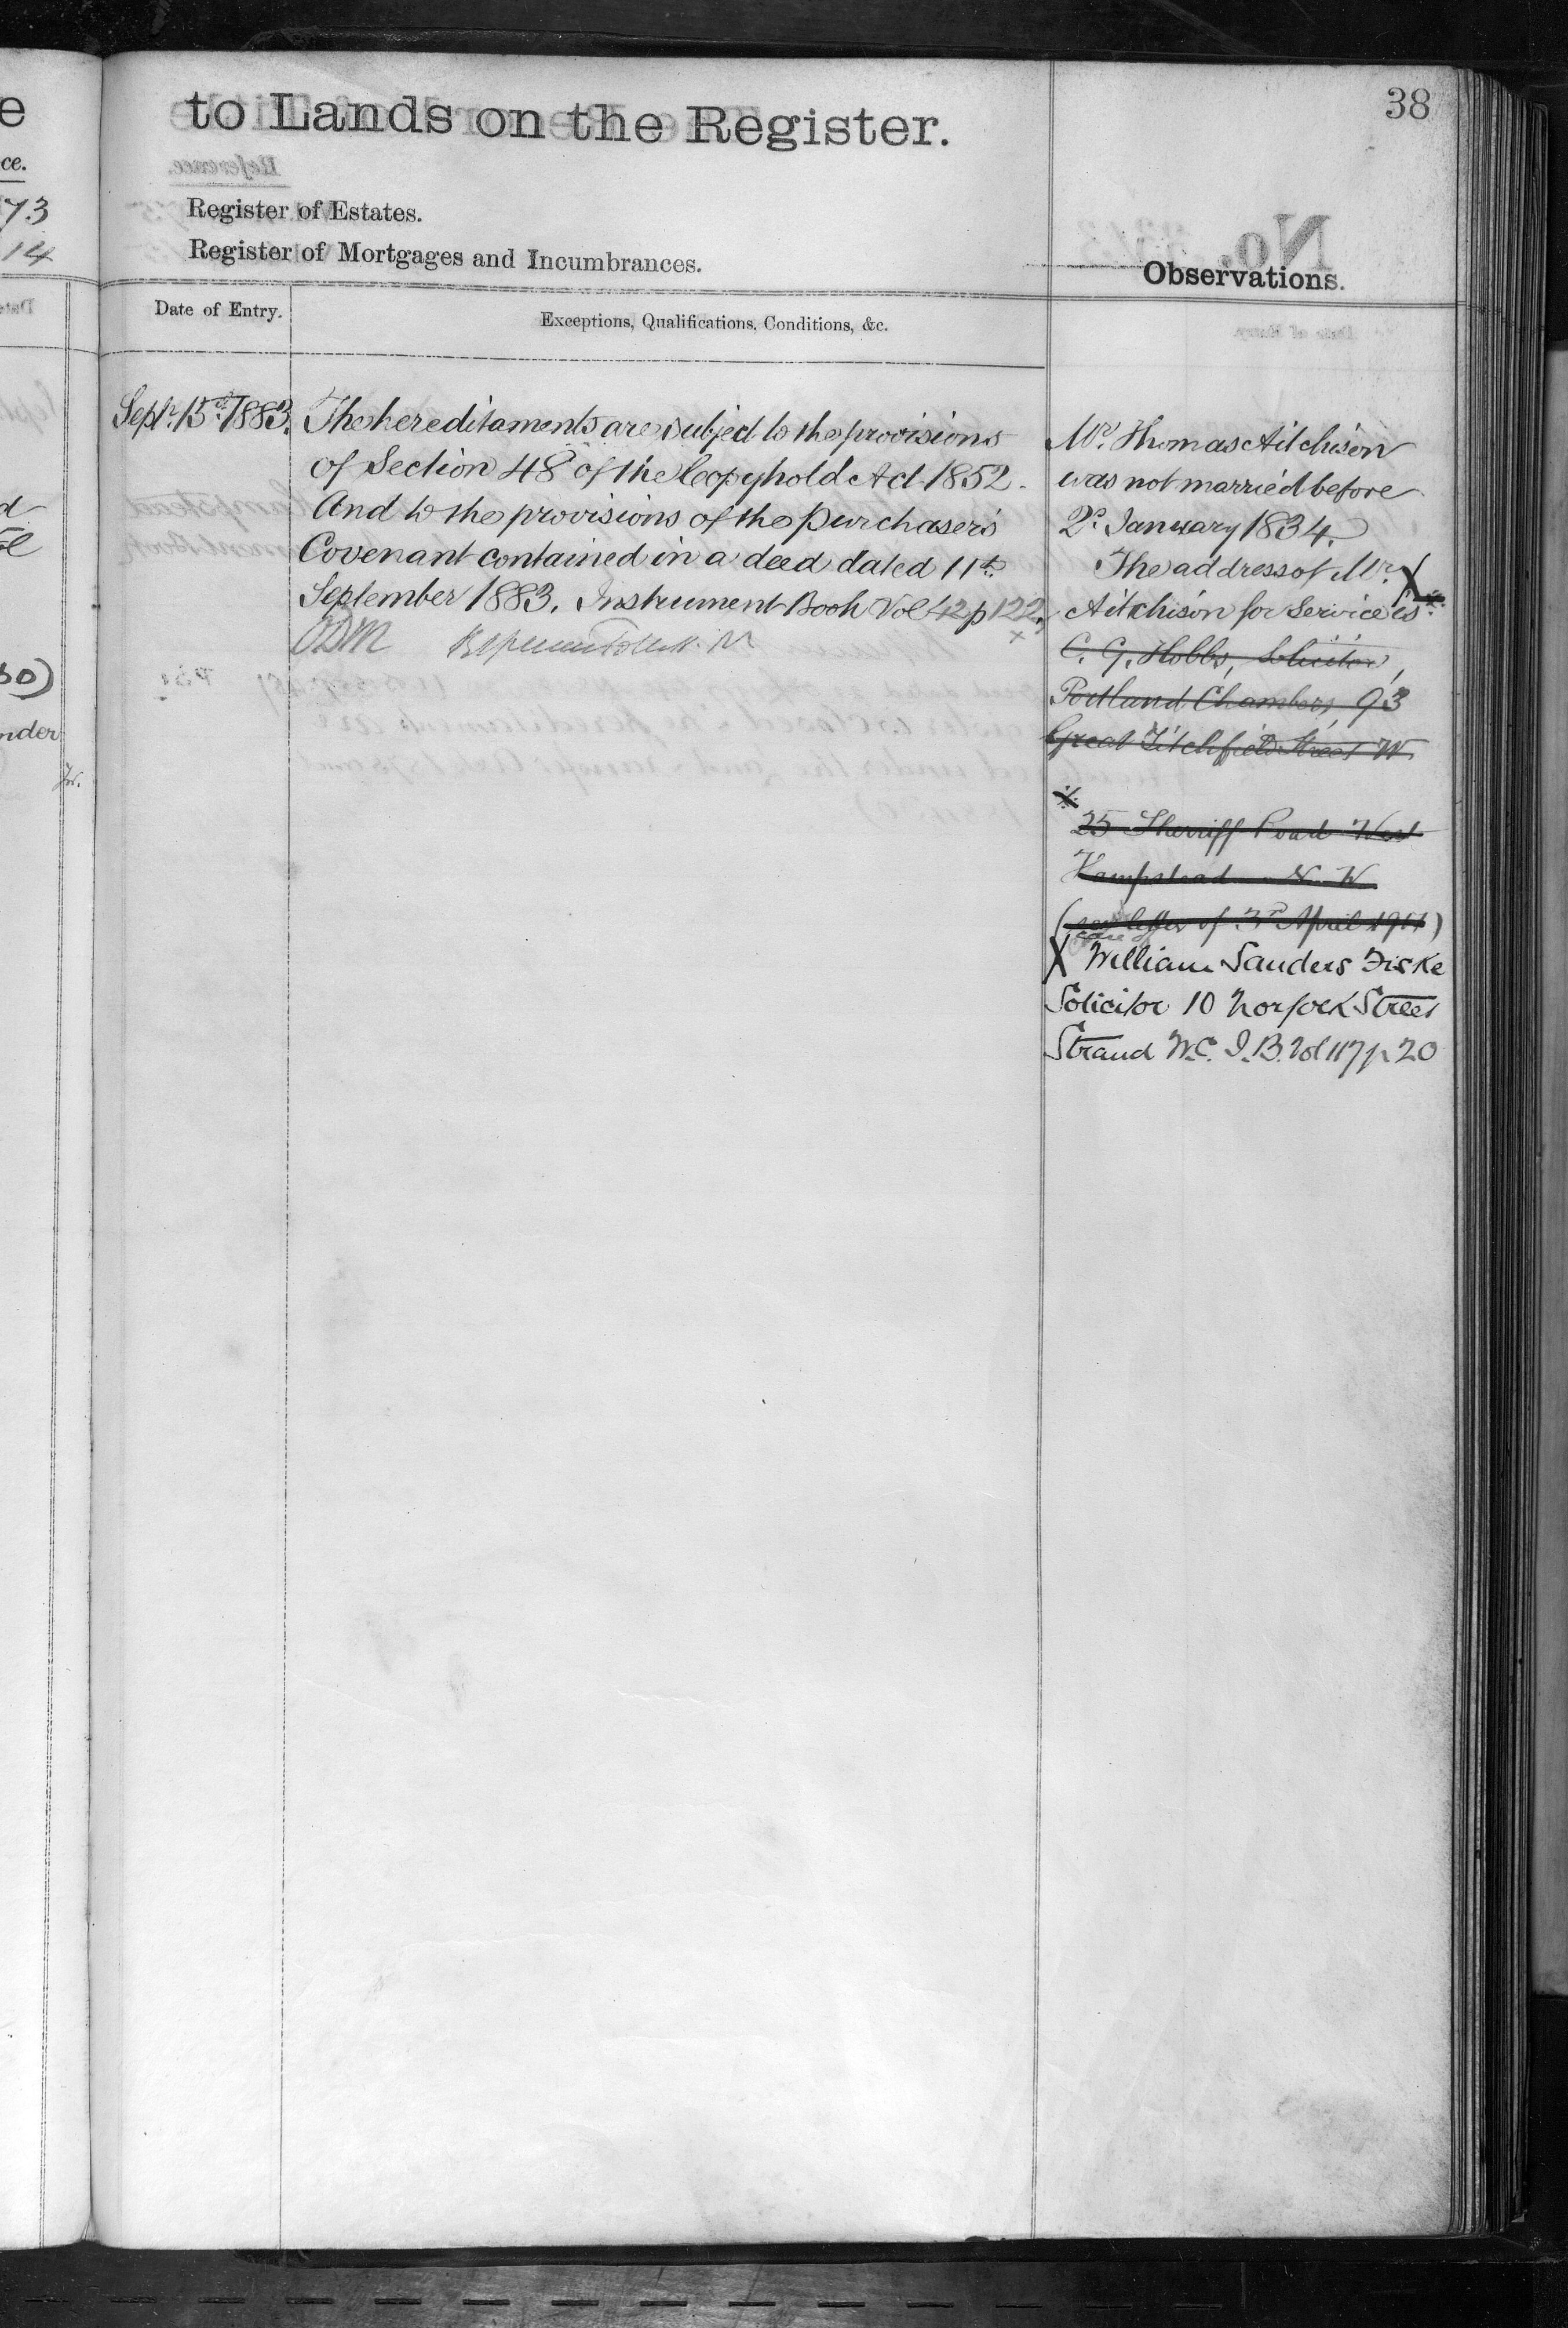 e
ce.
73
14
d
30)
nder
38
to Lands on the Register.
Register of Estates.
Register of Mortgages and Incumbrances.
No.
Observations.
Date of Entry.
Exceptions, Qualifications, Conditions, &c.
Septr. 15th 1883.
The hereditaments are subject to the provisions
of Section 48 of the Copyhold Act 1852.
And to the provisions of the purchaser's
Covenant contained in a deed dated 11th
September 1883. Instrument Book Vol 42 p 122.
Mr. Thomas Aitchison
was not married before
2d. January 1834.
The address of Mr. X
Aitchison for Service is
C. G. Hobbs, Solicitor,
Portland Chambers, 93
Great Titchfield Street W.
25 Sherriff Road West
Hampstead N. W
(see letter of 3rd April 1911)
care of
X William Sanders Fiske
Solicitor 10 Norfolk Street
Strand W.C. I.B. Vol 117 p 20